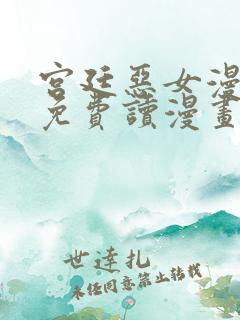 宮廷惡女漫
免費讀漫畫
世達扎
未經同意禁止轉載